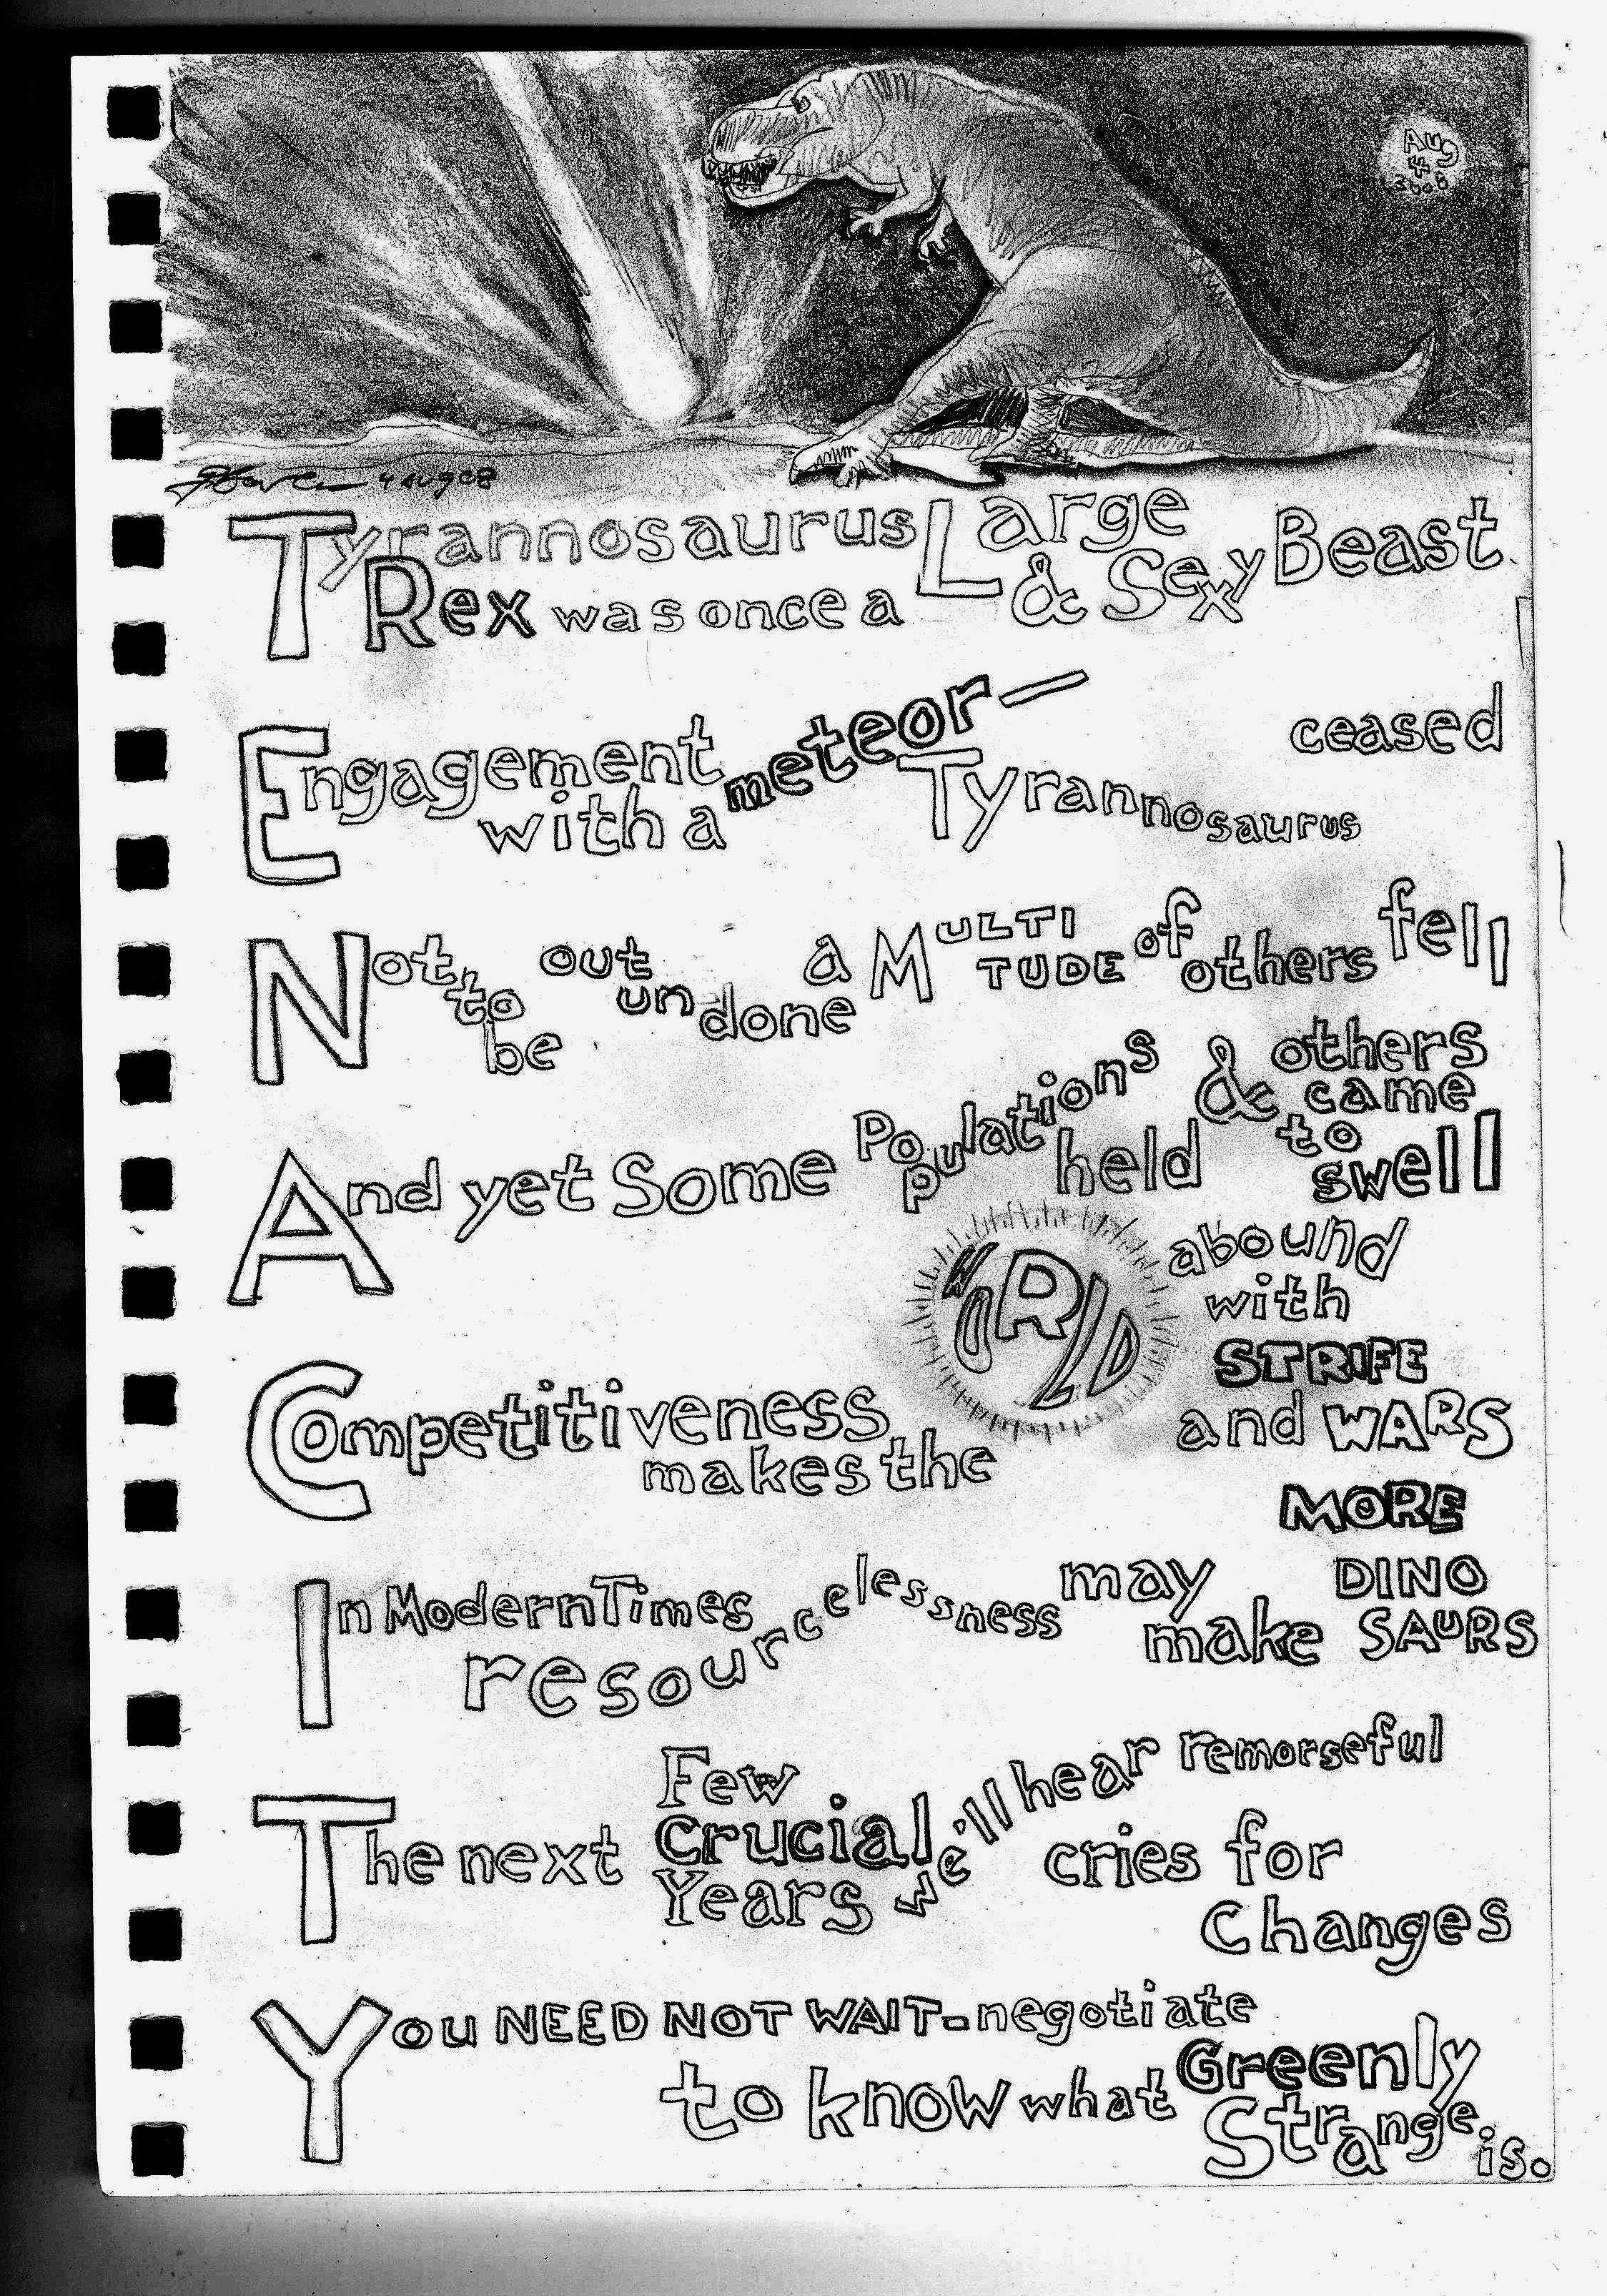 Aug
4
2008
4 Aug 08
Tyrannosaurus Rex was once a Large & Sexy Beast
Engagement with a meteor — Tyrannosaurus ceased
Not to be out undone a MULTITUDE of others fell
And yet Some Populations held & others came to swell
Competitiveness makes the WORLD abound with STRIFE and WARS
In Modern Times resourcelessness may make MORE DINOSAURS
The next Few Crucial Years we'll hear remorseful cries for Changes
You NEED NOT WAIT - negotiate to know what Greenly Strange is.